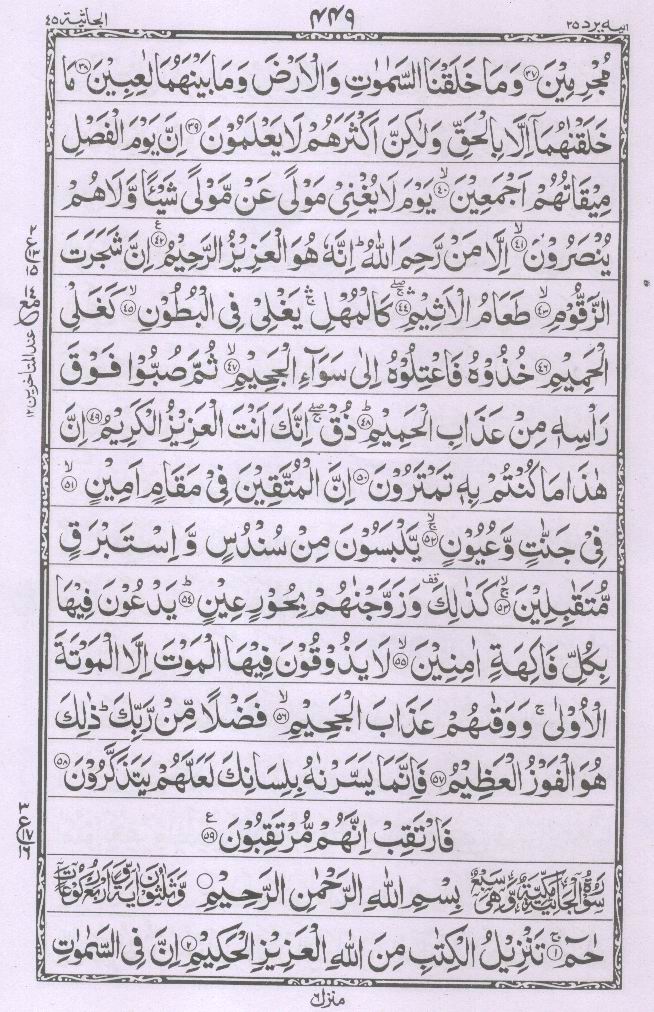 اليه يرد ٢٥ ٤٤٩ الجاثية ٤٥
مُجْرِمِيْنَ ﴿٣٧﴾ وَمَا خَلَقْنَا السَّمٰوٰتِ وَالْاَرْضَ وَمَا بَيْنَهُمَا لٰعِبِيْنَ ﴿٣٨﴾ مَا
خَلَقْنٰهُمَاۤ اِلَّا بِالْحَقِّ وَلٰكِنَّ اَكْثَرَهُمْ لَا يَعْلَمُوْنَ ﴿٣٩﴾ اِنَّ يَوْمَ الْفَصْلِ
مِيْقَاتُهُمْ اَجْمَعِيْنَ ۙ﴿٤٠﴾ يَوْمَ لَا يُغْنِيْ مَوْلًى عَنْ مَّوْلًى شَيْـًٔا وَّلَا هُمْ
يُنْصَرُوْنَ ۙ﴿٤١﴾ اِلَّا مَنْ رَّحِمَ اللّٰهُ ؕ اِنَّهٗ هُوَ الْعَزِيْزُ الرَّحِيْمُ ﴿٤٢﴾ ع اِنَّ شَجَرَتَ
الزَّقُّوْمِ ۙ﴿٤٣﴾ طَعَامُ الْاَثِيْمِ ۛۖۚ﴿٤٤﴾ كَالْمُهْلِ ۛۚ يَغْلِيْ فِي الْبُطُوْنِ ۙ﴿٤٥﴾ كَغَلْيِ
الْحَمِيْمِ ﴿٤٦﴾ خُذُوْهُ فَاعْتِلُوْهُ اِلٰى سَوَآءِ الْجَحِيْمِ ۙ﴿٤٧﴾ ثُمَّ صُبُّوْا فَوْقَ
رَاْسِهٖ مِنْ عَذَابِ الْحَمِيْمِ ؕ﴿٤٨﴾ ذُقْ ۖۚ اِنَّكَ اَنْتَ الْعَزِيْزُ الْكَرِيْمُ ﴿٤٩﴾ اِنَّ
هٰذَا مَا كُنْتُمْ بِهٖ تَمْتَرُوْنَ ﴿٥٠﴾ اِنَّ الْمُتَّقِيْنَ فِيْ مَقَامٍ اَمِيْنٍ ۙ﴿٥١﴾
فِيْ جَنّٰتٍ وَّعُيُوْنٍ ۚۙ﴿٥٢﴾ يَّلْبَسُوْنَ مِنْ سُنْدُسٍ وَّاِسْتَبْرَقٍ
مُّتَقٰبِلِيْنَ ۚۙ﴿٥٣﴾ كَذٰلِكَ قف وَزَوَّجْنٰهُمْ بِحُوْرٍ عِيْنٍ ؕ﴿٥٤﴾ يَدْعُوْنَ فِيْهَا
بِكُلِّ فَاكِهَةٍ اٰمِنِيْنَ ۙ﴿٥٥﴾ لَا يَذُوْقُوْنَ فِيْهَا الْمَوْتَ اِلَّا الْمَوْتَةَ
الْاُوْلٰى ۚ وَوَقٰىهُمْ عَذَابَ الْجَحِيْمِ ۙ﴿٥٦﴾ فَضْلًا مِّنْ رَّبِّكَ ؕ ذٰلِكَ
هُوَ الْفَوْزُ الْعَظِيْمُ ﴿٥٧﴾ فَاِنَّمَا يَسَّرْنٰهُ بِلِسَانِكَ لَعَلَّهُمْ يَتَذَكَّرُوْنَ ﴿٥٨﴾
فَارْتَقِبْ اِنَّهُمْ مُّرْتَقِبُوْنَ ﴿٥٩﴾ ع
سُوْرَةُ الْجَاثِيَةِ مَكِّيَّةٌ وَّهِيَ سَبْعٌ بِسْمِ اللّٰهِ الرَّحْمٰنِ الرَّحِيْمِ وَّثَلٰثُوْنَ اٰيَةً وَّاَرْبَعُ رُكُوْعَاتٍ
حٰمٓ ۚ﴿١﴾ تَنْزِيْلُ الْكِتٰبِ مِنَ اللّٰهِ الْعَزِيْزِ الْحَكِيْمِ ﴿٢﴾ اِنَّ فِي السَّمٰوٰتِ
منزل ٦
عند المتاخرين ١٢